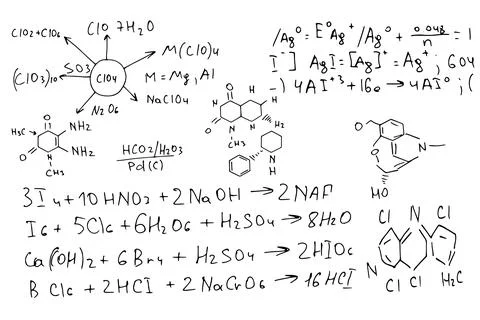 ClO 7H2O
ClO2+ClO6
M(ClO)4
(ClO3)10
SO3
ClO4
M=Mg,Al
N2O6
NaClO4
/Ag°=E°Ag+/Ag°+ 0.048/n =1
I-] AgI=[Ag]+=Ag+; 604
-) 4Al+3+16e→4Al°;(
O
H3C
NH2
NH2
O
N
CH3
HCO2/H2O3
Pd(C)
O
H
N
H
O
N
H2
CH3
H
N
H
O
O
N
HO
3I4+10HNO3+2NaOH→2NAF
I6+5Cl6+6H2O6+H2SO4→8H2O
Ca(OH)2+6Br4+H2SO4→2HIO6
BCl6+2HCl+2NaCrO6→16HCl
Cl
N
Cl
N
Cl
Cl
H2C